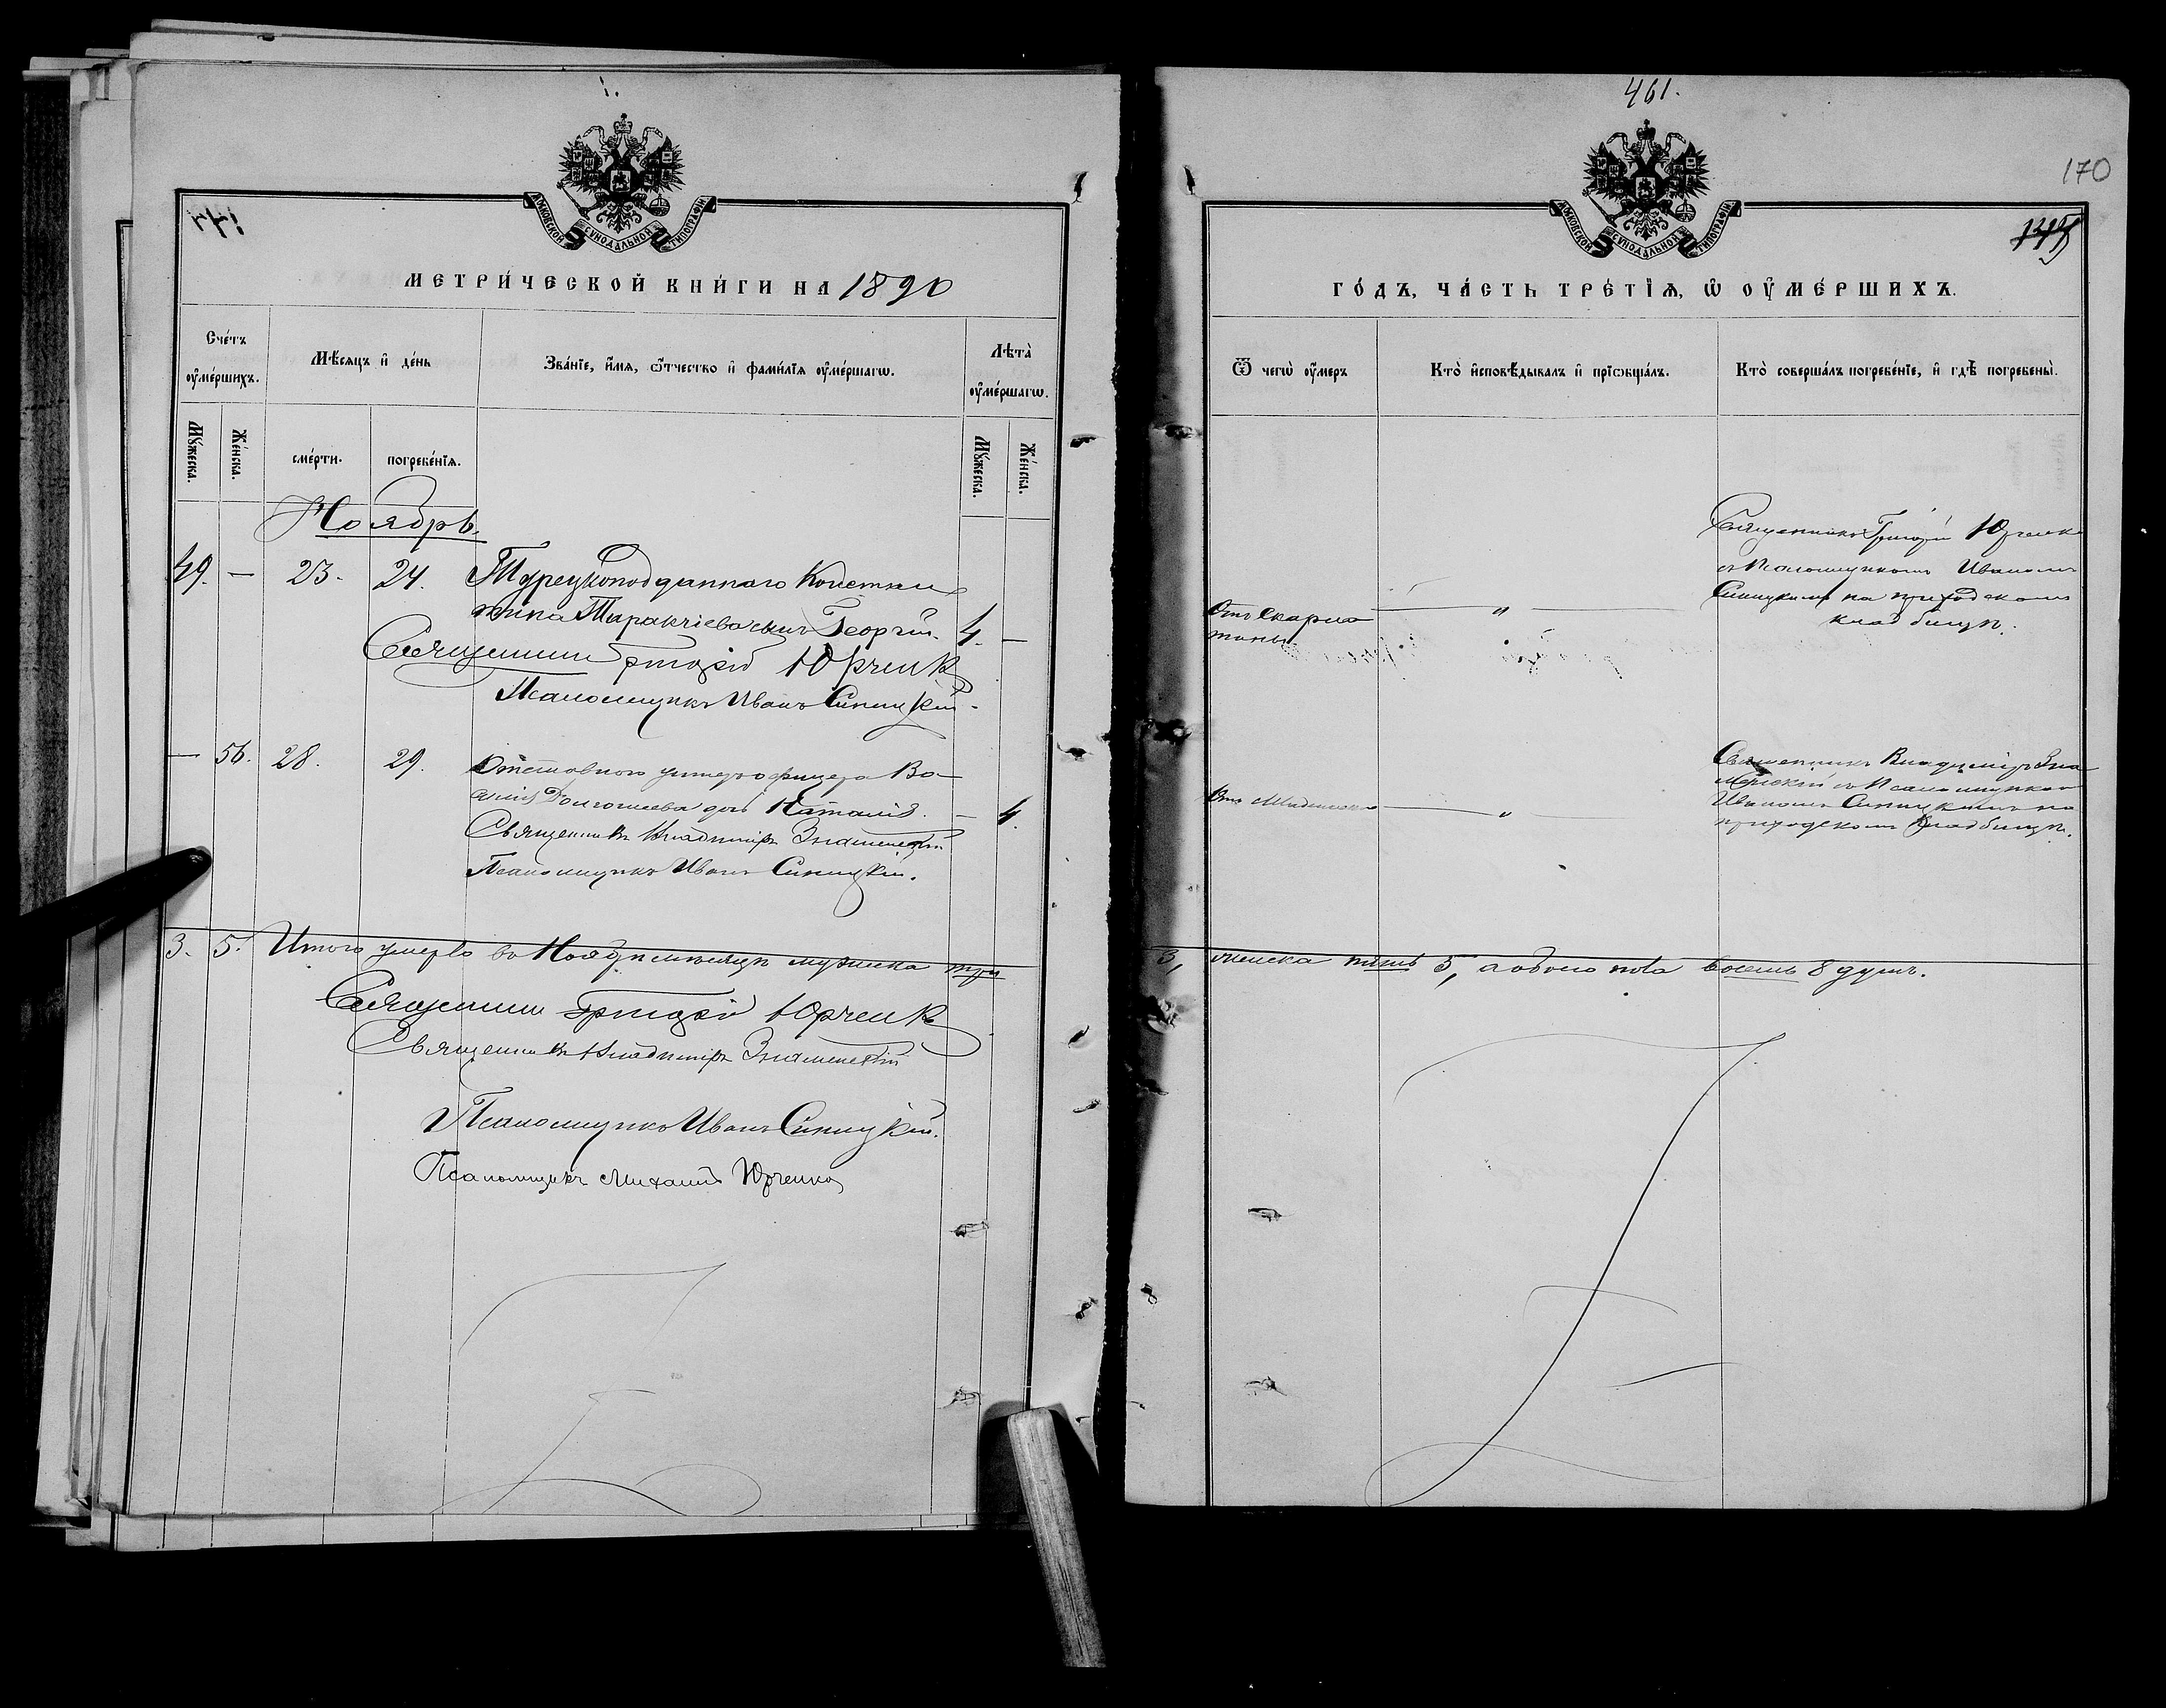 461.
170
МОСКОВСКОЙ СѴНОДАЛЬНОЙ ТИПОГРАФІИ
МЕТРИ́ЧЕСКОЙ КНИ́ГИ НА 1890
Сче́тъ оу҆ме́ршихъ.
Мѣ́сяцъ и҆ де́нь
Зва́нїе, и҆́мѧ, ѻ҆́тчество и҆ фами́лїѧ оу҆ме́ршагѡ.
Лѣта̀ оу҆ме́ршагѡ.
Мꙋ́жеска.
Же́нска.
сме́рти.
погребе́нїѧ.
Мꙋ́жеска.
Же́нска.
Ноябрь.
49. — 23. 24. Турецкоподданнаго Констан
тина сынъ Георгій. 4. —
Священникъ Григорій Юрченко
Псаломщикъ Иванъ Синицкій.
— 56. 28. 29. Отставного унтеръ офицера Ва-
силія дочь Наталія. — 4.
Священникъ Владиміръ Знаменскій
Псаломщикъ Иванъ Синицкій.
3. 5. Итого умерло въ Ноябрѣ мѣсяцѣ мужеска три
Священникъ Григорій Юрченко
Священникъ Владиміръ Знаменскій
Псаломщикъ Иванъ Синицкій.
Псаломщикъ Михаилъ Юрченко
МОСКОВСКОЙ СѴНОДАЛЬНОЙ ТИПОГРАФІИ
ГО́ДЪ, ЧА́СТЬ ТРЕ́ТЇѦ, Ѽ ОУ҆МЕ́РШИХЪ.
Ѿ чегѡ̀ оу҆́меръ
Кто̀ и҆сповѣ́дывалъ и҆ прїѡбща́лъ.
Кто̀ соверша́лъ погребе́нїе, и҆ гдѣ̀ погребены̀.
Отъ Скарла
тины
— " —
Священникъ Григорій Юрченко
съ Псаломщикомъ Иваномъ
Синицкимъ на приходскомъ
кладбищѣ.
Отъ
— " —
Священникъ Владиміръ Зна
менскій съ Псаломщикомъ
Иваномъ Синицкимъ на
приходскомъ кладбищѣ.
3, женска пять 5, а обоего пола восемь 8 душъ.